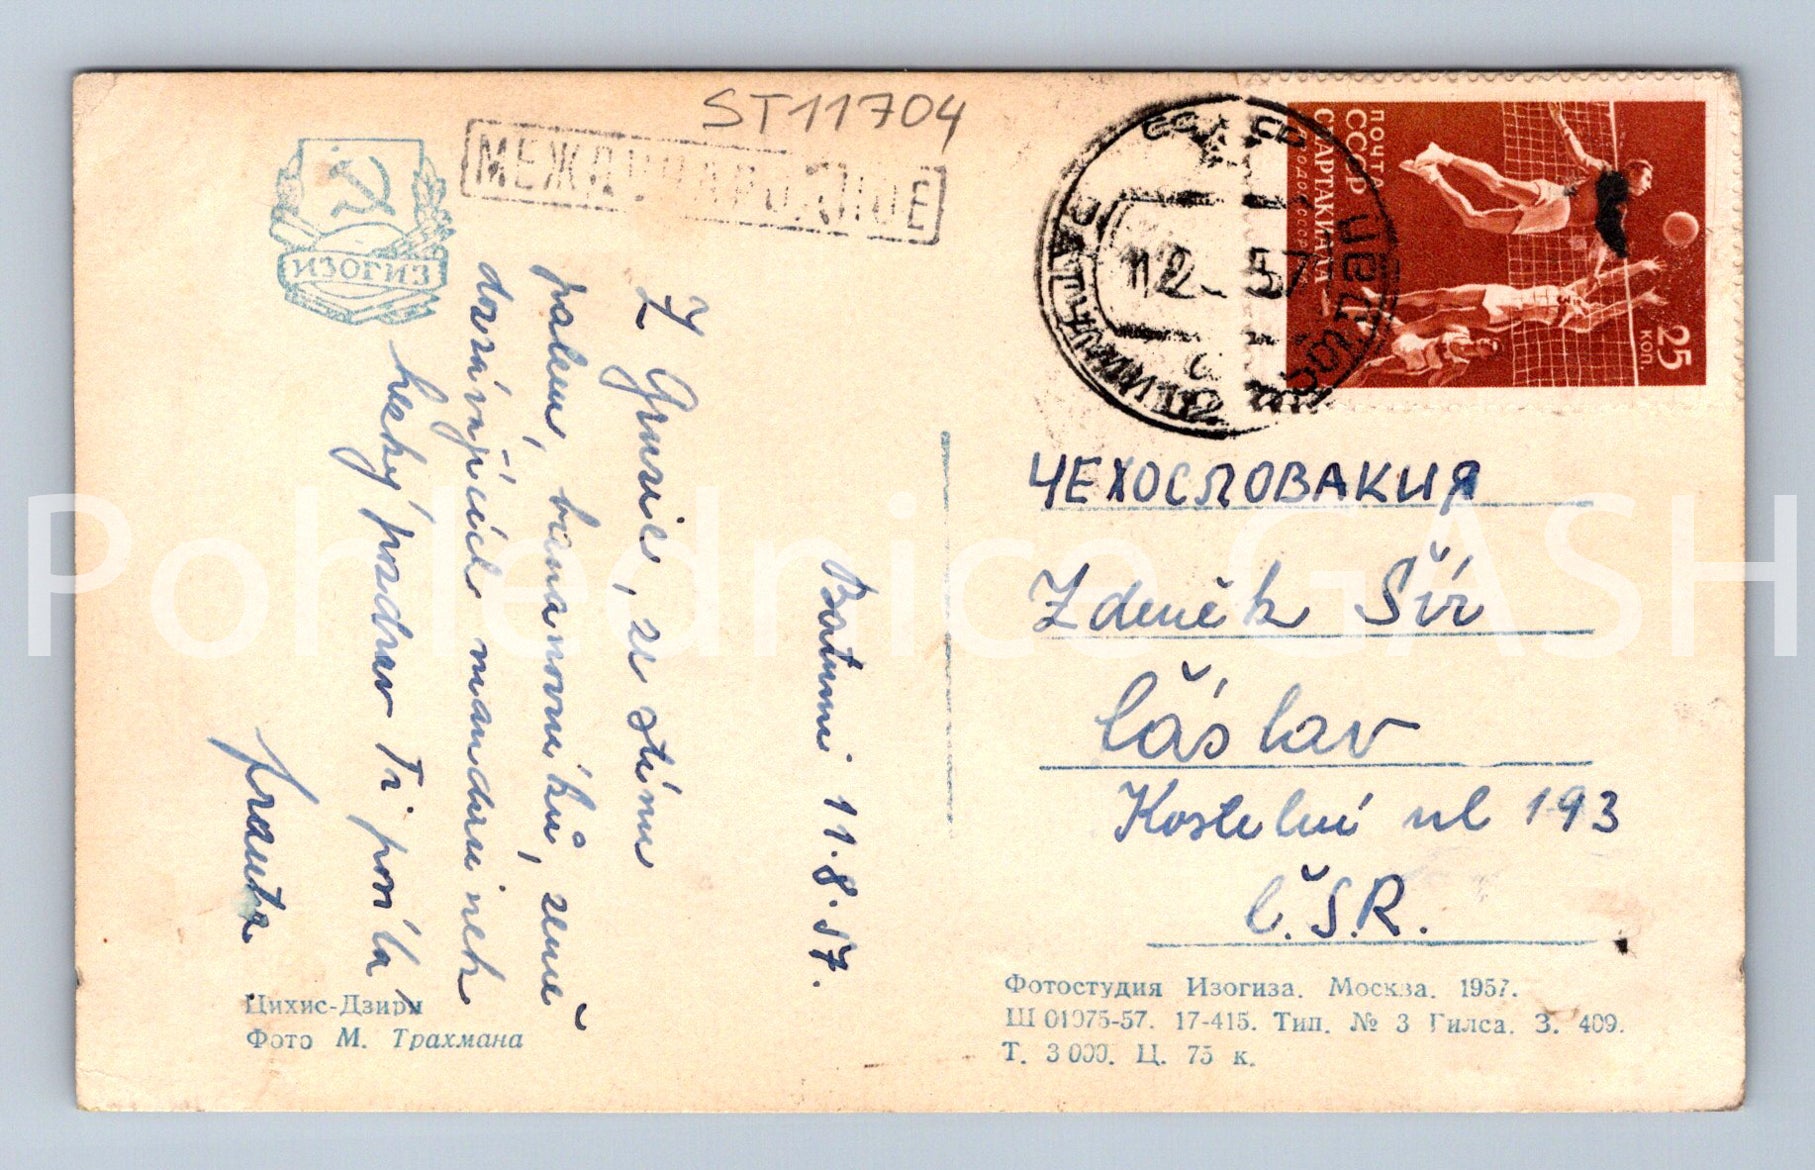 ST11704
МЕЖДУНАРОДНОЕ
ИЗОГИЗ
ПОЧТА
СССР
СПАРТАКИАДА
25
КОП.
12
57
Batumi 11.8.57.
Z Gruzie, ze stínu
palem, banánovníků, země
dozrávajících mandarinek
hezký pozdrav Ti posílá
Franta
ЧЕХОСЛОВАКИЯ
Zdeněk Šír
Čáslav
Kostelní ul 193
Č.S.R.
Цихис-Дзири
Фото М. Трахмана
Фотостудия Изогиза. Москва. 1957.
Ш 01075-57. 17-415. Тип. № 3 Гилса. З. 409.
Т. 3 000. Ц. 75 к.
Pohlednice GASH